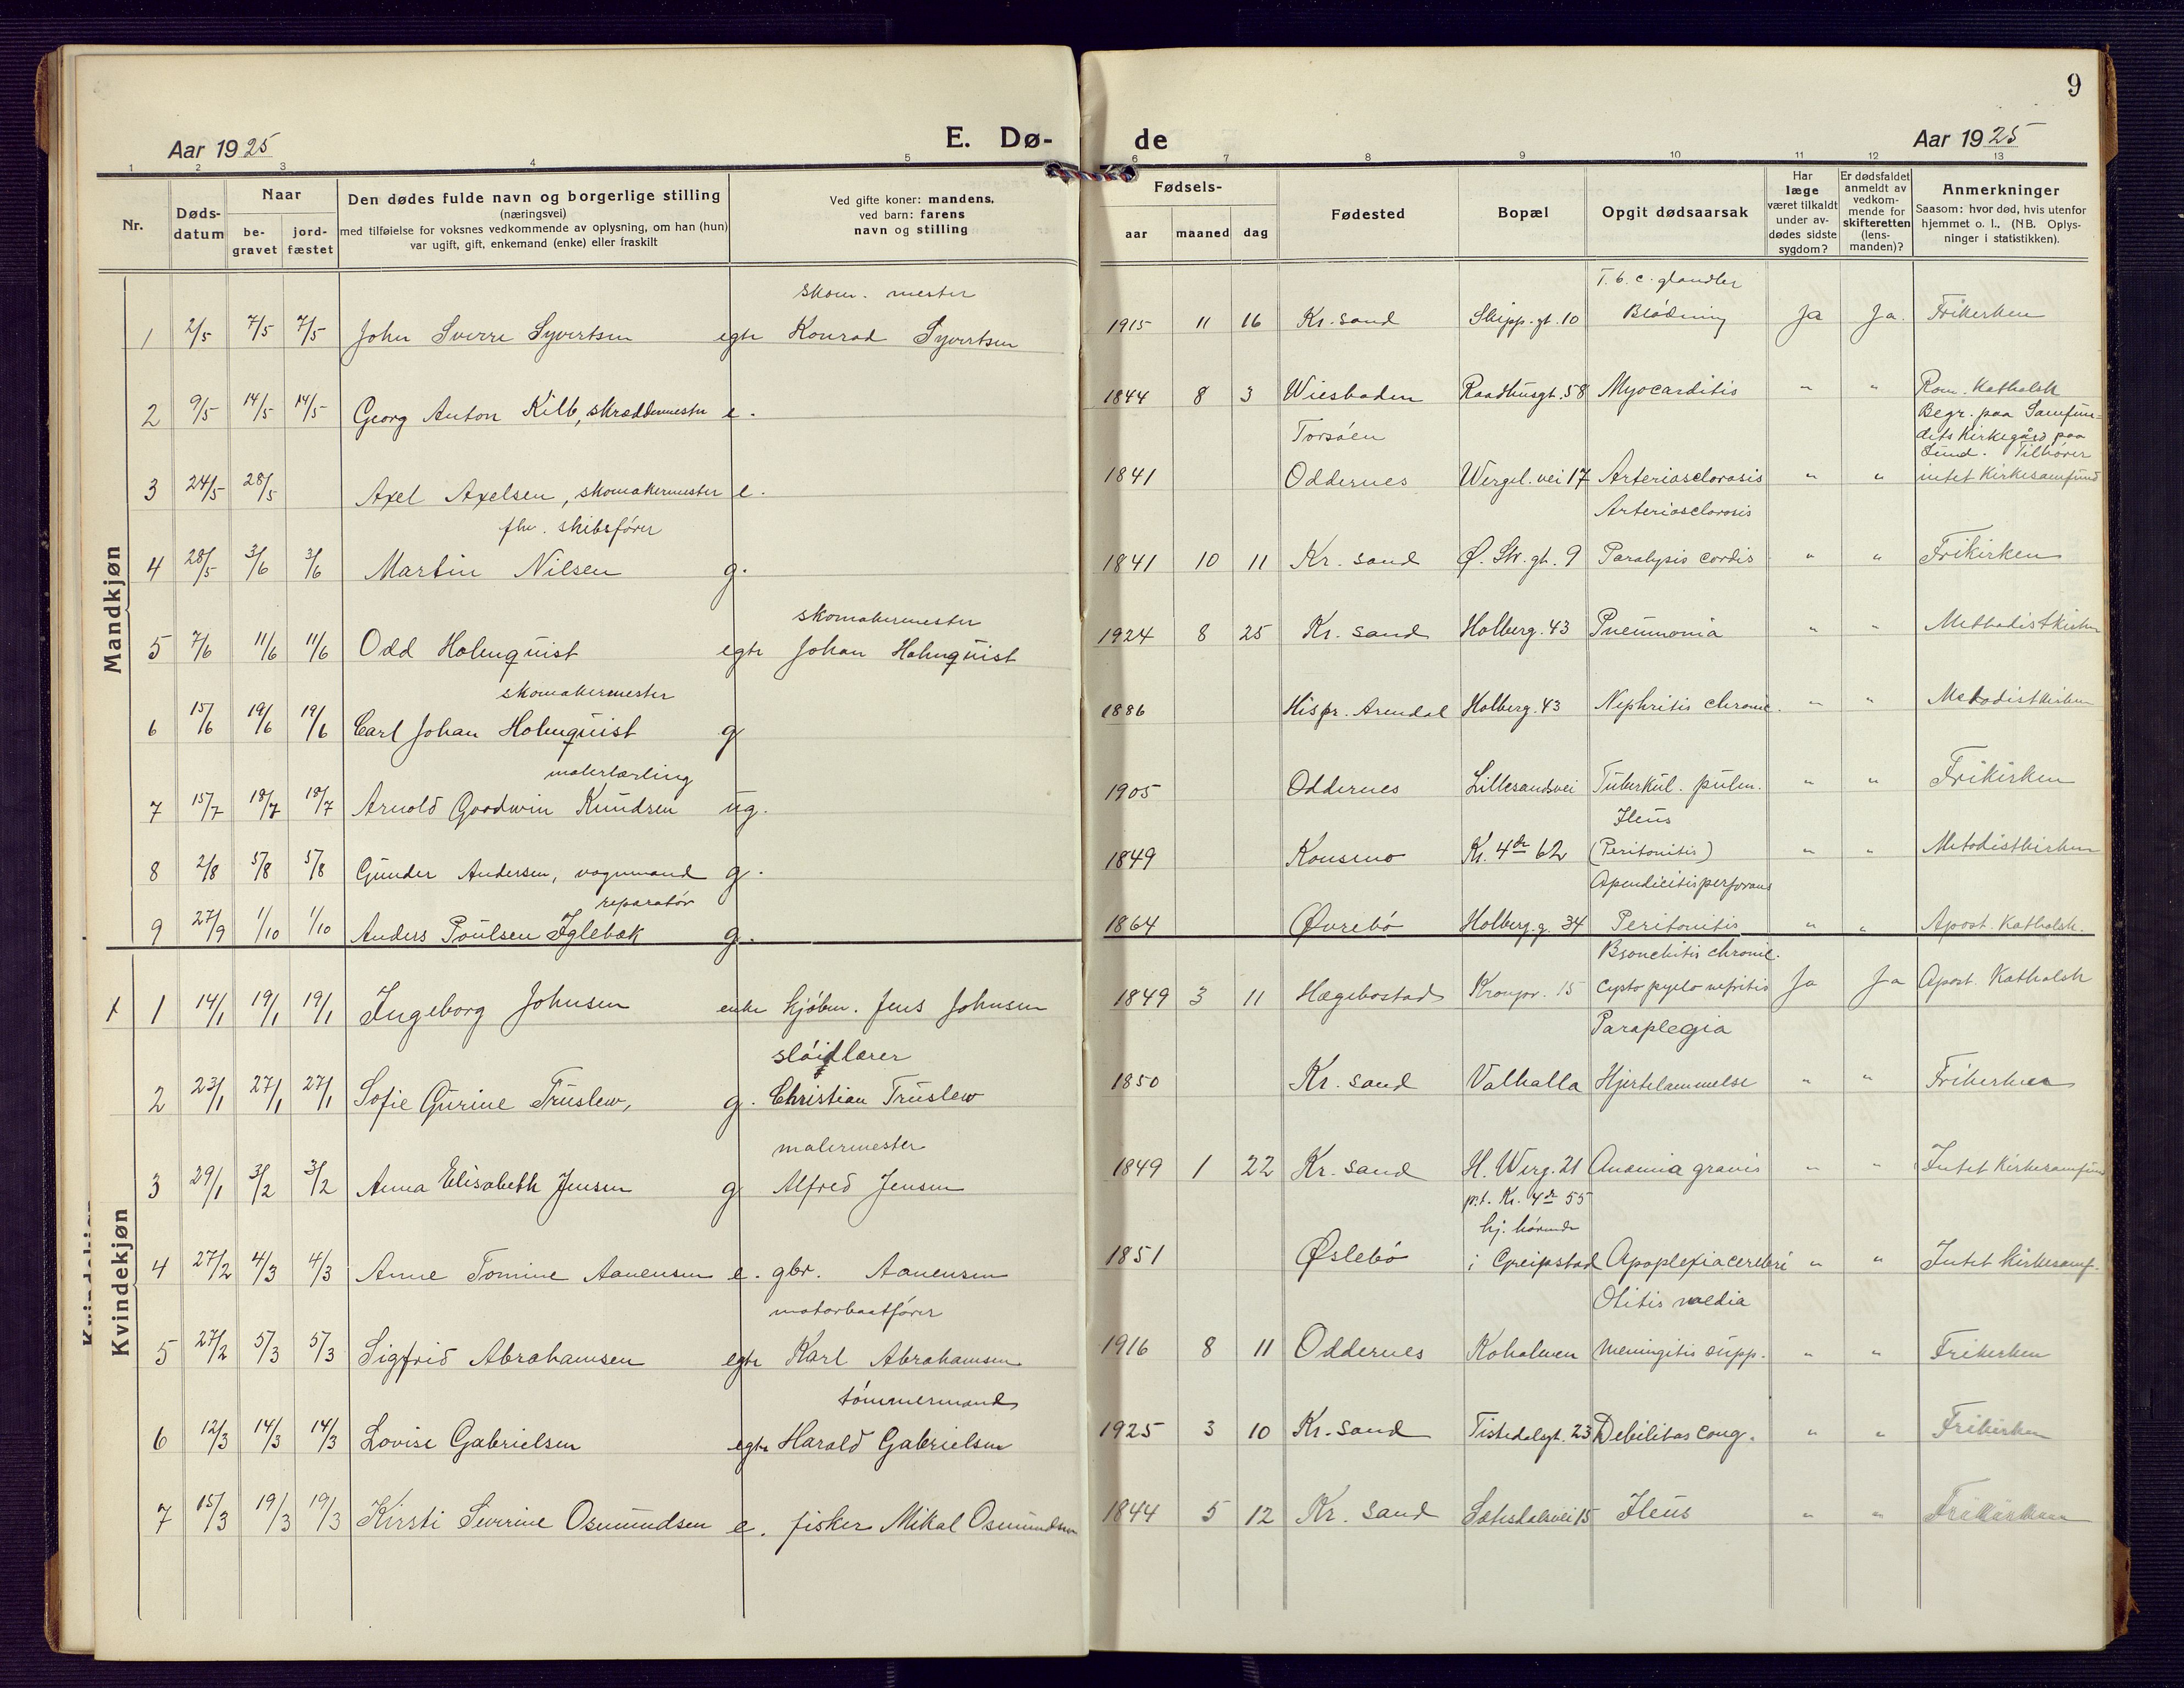 9
Aar 1925 E. Dø- de Aar 1925
1 2 3 4 5 6 7 8 9 10 11 12 13
Nr.
Døds-
datum
Naar
be-
gravet
jord-
fæstet
Den dødes fulde navn og borgerlige stilling
(næringsvei)
med tilføielse for voksnes vedkommende av oplysning, om han (hun)
var ugift, gift, enkemand (enke) eller fraskilt
Ved gifte koner: mandens,
ved barn: farens
navn og stilling
Fødsels-
aar maaned dag
Fødested
Bopæl
Opgit dødsaarsak
Har
læge
været tilkaldt
under av-
dødes sidste
sygdom?
Er dødsfaldet
anmeldt av
vedkom-
mende for
skifteretten
(lens-
manden)?
Anmerkninger
Saasom: hvor død, hvis utenfor
hjemmet o. l., (NB. Oplys-
ninger i statistikken).
Mandkjøn
skom. mester T.b.c. glandler
1 2/5 7/5 7/5 John Sverre Syvertsen egte Konrad Syvertsen 1915 11 16 Kr. sand Skipp. gt. 10 Blödning Ja Ja. Frikirken
2 9/5 14/5 14/5 Georg Anton Kilb, skræddermester e. 1844 8 3 Wiesbaden Raadhusgt. 58 Myocarditis " " Rom. Katholsk
Torsöen Begr. paa Samfun-
dets Kirkegård paa
Lund. Tilhører
3 24/5 28/5 Axel Axelsen, skomakermester e. 1841 Oddernes Wergel. vei 17 Arteriosclorosis " " intet Kirkesamfund
fhv. skibsfører Arteriosclorosis
4 28/5 3/6 3/6 Martin Nilsen g. 1841 10 11 Kr. sand Ø. Str. gt. 9 Paralysis cordis " " Frikirken
skomakermester
5 7/6 11/6 11/6 Odd Holmquist egte Johan Holmquist 1924 8 25 Kr. sand Holberg. 43 Pneumonia " " Methodistkirken
skomakermester
6 15/6 19/6 19/6 Carl Johan Holmquist g 1886 His pr. Arendal Holberg. 43 Nephritis chronic. " " Metodistkirken
malerlærling
7 15/7 18/7 18/7 Arnold Goodwin Knudsen ug. 1905 Oddernes Lillesandsvei Tuberkul. pulm. " " Frikirken
Ileus
8 2/8 5/8 5/8 Gunder Andersen, vognmand g. 1849 Konsmo Kr. 4de 62 (Peritonitis) " " Metodistkirken
reparatør Apendicitis perforans
9 27/9 1/10 1/10 Anders Poulsen Iglebæk g. 1864 Øvrebö Holberg. g. 34 Peritonitis " " Apost. Katholsk.
Kvindekjøn
Bronchitis chronic.
x 1 14/1 19/1 19/1 Ingeborg Johnsen enke kjøbm. Jens Johnsen 1849 3 11 Hægebostad Kronpr. 15 Cysto pyelo nefritis Ja Ja Apost. Katholsk
sløidlærer Paraplegia
2 23/1 27/1 27/1 Sofie Gurine Truslew, g. Christian Truslew 1850 Kr. sand Valhalla Hjertelammelse " " Frikirken
malermester
3 29/1 3/2 3/2 Anna Elisabeth Jensen g Alfred Jensen 1849 1 22 Kr. sand H. Werg. 21 Anæmia gravis " " Intet Kirkesamfund
p.t. Kr. 4de 55
hj. hörende
4 27/2 4/3 4/3 Anne Tomine Aanensen e. gbr. Aanensen 1851 Øslebö i Greipstad Apoplexia cerebri " " Intet Kirkesamf.
motorbaatfører Otitis media
5 27/2 5/3 5/3 Sigfrid Abrahamsen egte Karl Abrahamsen 1916 8 11 Oddernes Koholmen Meningitis supp. " " Frikirken
tømmermand
6 12/3 14/3 14/3 Lovise Gabrielsen egte Harald Gabrielsen 1925 3 10 Kr. sand Tistedalsgt. 23 Debilitas cong. " " Frikirken
7 15/3 19/3 19/3 Kirsti Severine Osmundsen e. fisker Mikal Osmundsen 1844 5 12 Kr. sand Sætesdalsvei 15 Ileus " " Frikirken